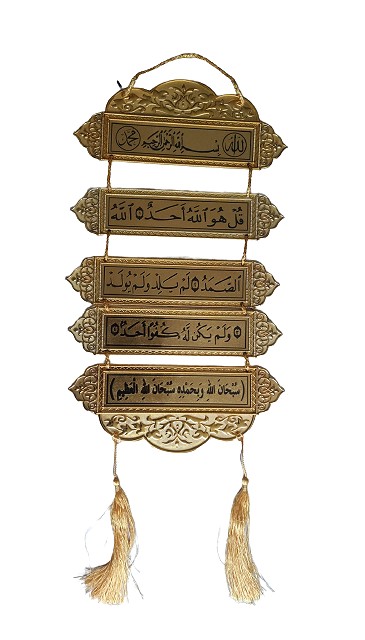 الله بسم الله الرحمن الرحيم محمد
قُلْ هُوَ ٱللَّهُ أَحَدٌ ۝١ ٱللَّهُ
ٱلصَّمَدُ ۝٢ لَمْ يَلِدْ وَلَمْ يُولَدْ
۝٣ وَلَمْ يَكُن لَّهُ كُفُوًا أَحَدٌ ۝٤
(سُبْحَانَ اللهِ وَبِحَمْدِهِ سُبْحَانَ اللهِ الْعَظِيمِ)